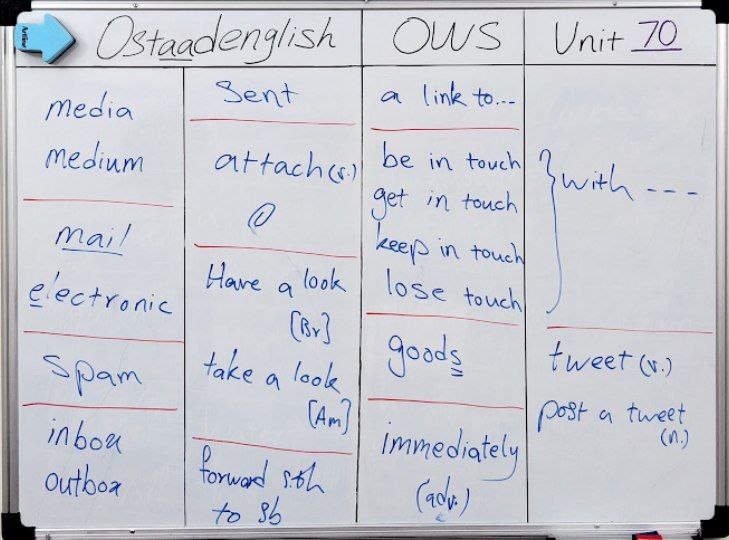 Artline
Ostaadenglish
OWS
Unit 70
media
medium
mail
electronic
spam
inbox
outbox
Sent
attach (v.)
@
Have a look
[Br]
take a look
[Am]
forward sth
to sb
a link to...
be in touch
get in touch
keep in touch
lose touch
goods
immediately
(adv.)
} with ---
tweet (v.)
post a tweet
(n.)